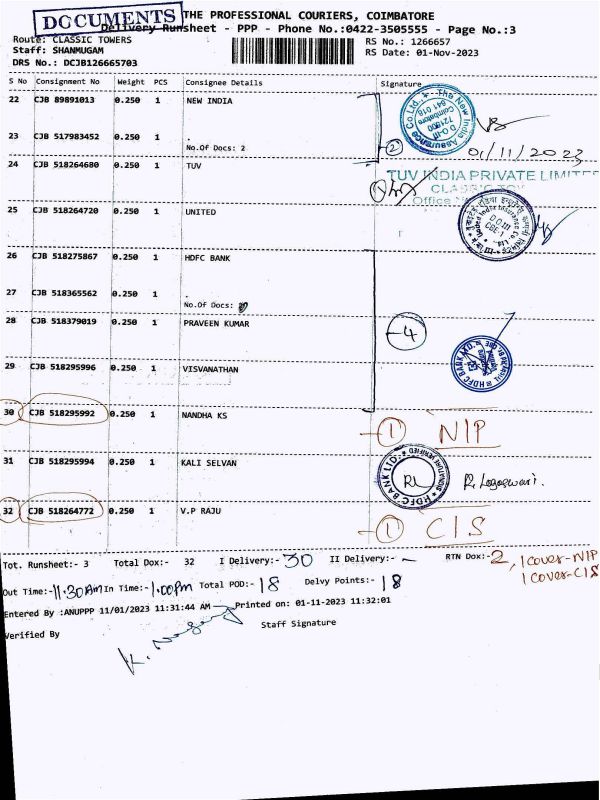 DOCUMENTS
THE PROFESSIONAL COURIERS, COIMBATORE
Delivery Runsheet - PPP - Phone No.:0422-3505555 - Page No.:3
Route: CLASSIC TOWERS RS No.: 1266657
Staff: SHANMUGAM RS Date: 01-Nov-2023
DRS No.: DCJB126665703
S No Consignment No Weight PCS Consignee Details Signature
22 CJB 89891013 0.250 1 NEW INDIA
The New India Assurance Co.Ltd.,
Coimbatore
641 018
23 CJB 517983452 0.250 1 .
No.Of Docs: 2
2
01/11/2023
24 CJB 518264680 0.250 1 TUV
TUV INDIA PRIVATE LIMITED
Office
25 CJB 518264720 0.250 1 UNITED
United India Insurance Co. Ltd.
D.O.III
CBE-1
26 CJB 518275867 0.250 1 HDFC BANK
27 CJB 518365562 0.250 1 .
No.Of Docs:
28 CJB 518379019 0.250 1 PRAVEEN KUMAR
-4
HDFC BANK LTD.
29 CJB 518295996 0.250 1 VISVANATHAN
30 CJB 518295992 0.250 1 NANDHA KS
-1 NIP
31 CJB 518295994 0.250 1 KALI SELVAN
HDFC BANK LTD. SIGNATURE VERIFIED
R. Logeswari.
32 CJB 518264772 0.250 1 V.P RAJU
-1 CIS
Tot. Runsheet:- 3 Total Dox:- 32 I Delivery:- 30 II Delivery:- - RTN Dox:- 2, 1 cover-NIP
1 cover-CIS
Out Time:- 11.30AM In Time:- 1.00pm Total POD:- 18 Delvy Points:- 18
Entered By :ANUPPP 11/01/2023 11:31:44 AM Printed on: 01-11-2023 11:32:01
Verified By Staff Signature